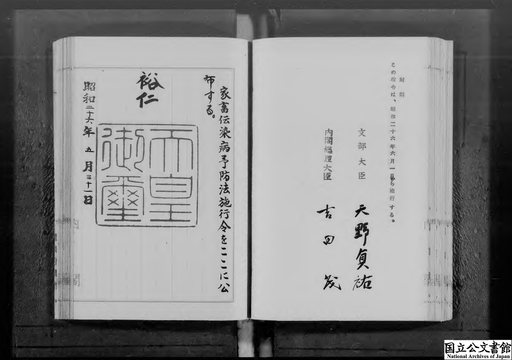 家畜伝染病予防法施行令をここに公
布する。
裕仁
天皇
御璽
昭和二十六年五月三十一日
附則
この政令は、昭和二十六年六月一日から施行する。
文部大臣 天野貞祐
内閣総理大臣 吉田茂
国立公文書館
National Archives of Japan